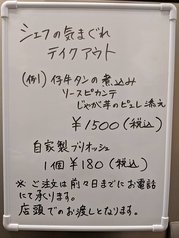 シェフの気まぐれ
テイクアウト
(例) 仔牛タンの煮込み
ソースピカンテ
じゃが芋のピュレ添え
¥1500(税込)
自家製ブリオッシュ
1個¥180(税込)
※ご注文は前々日までにお電話
にて承ります。
店頭でのお渡しとなります。